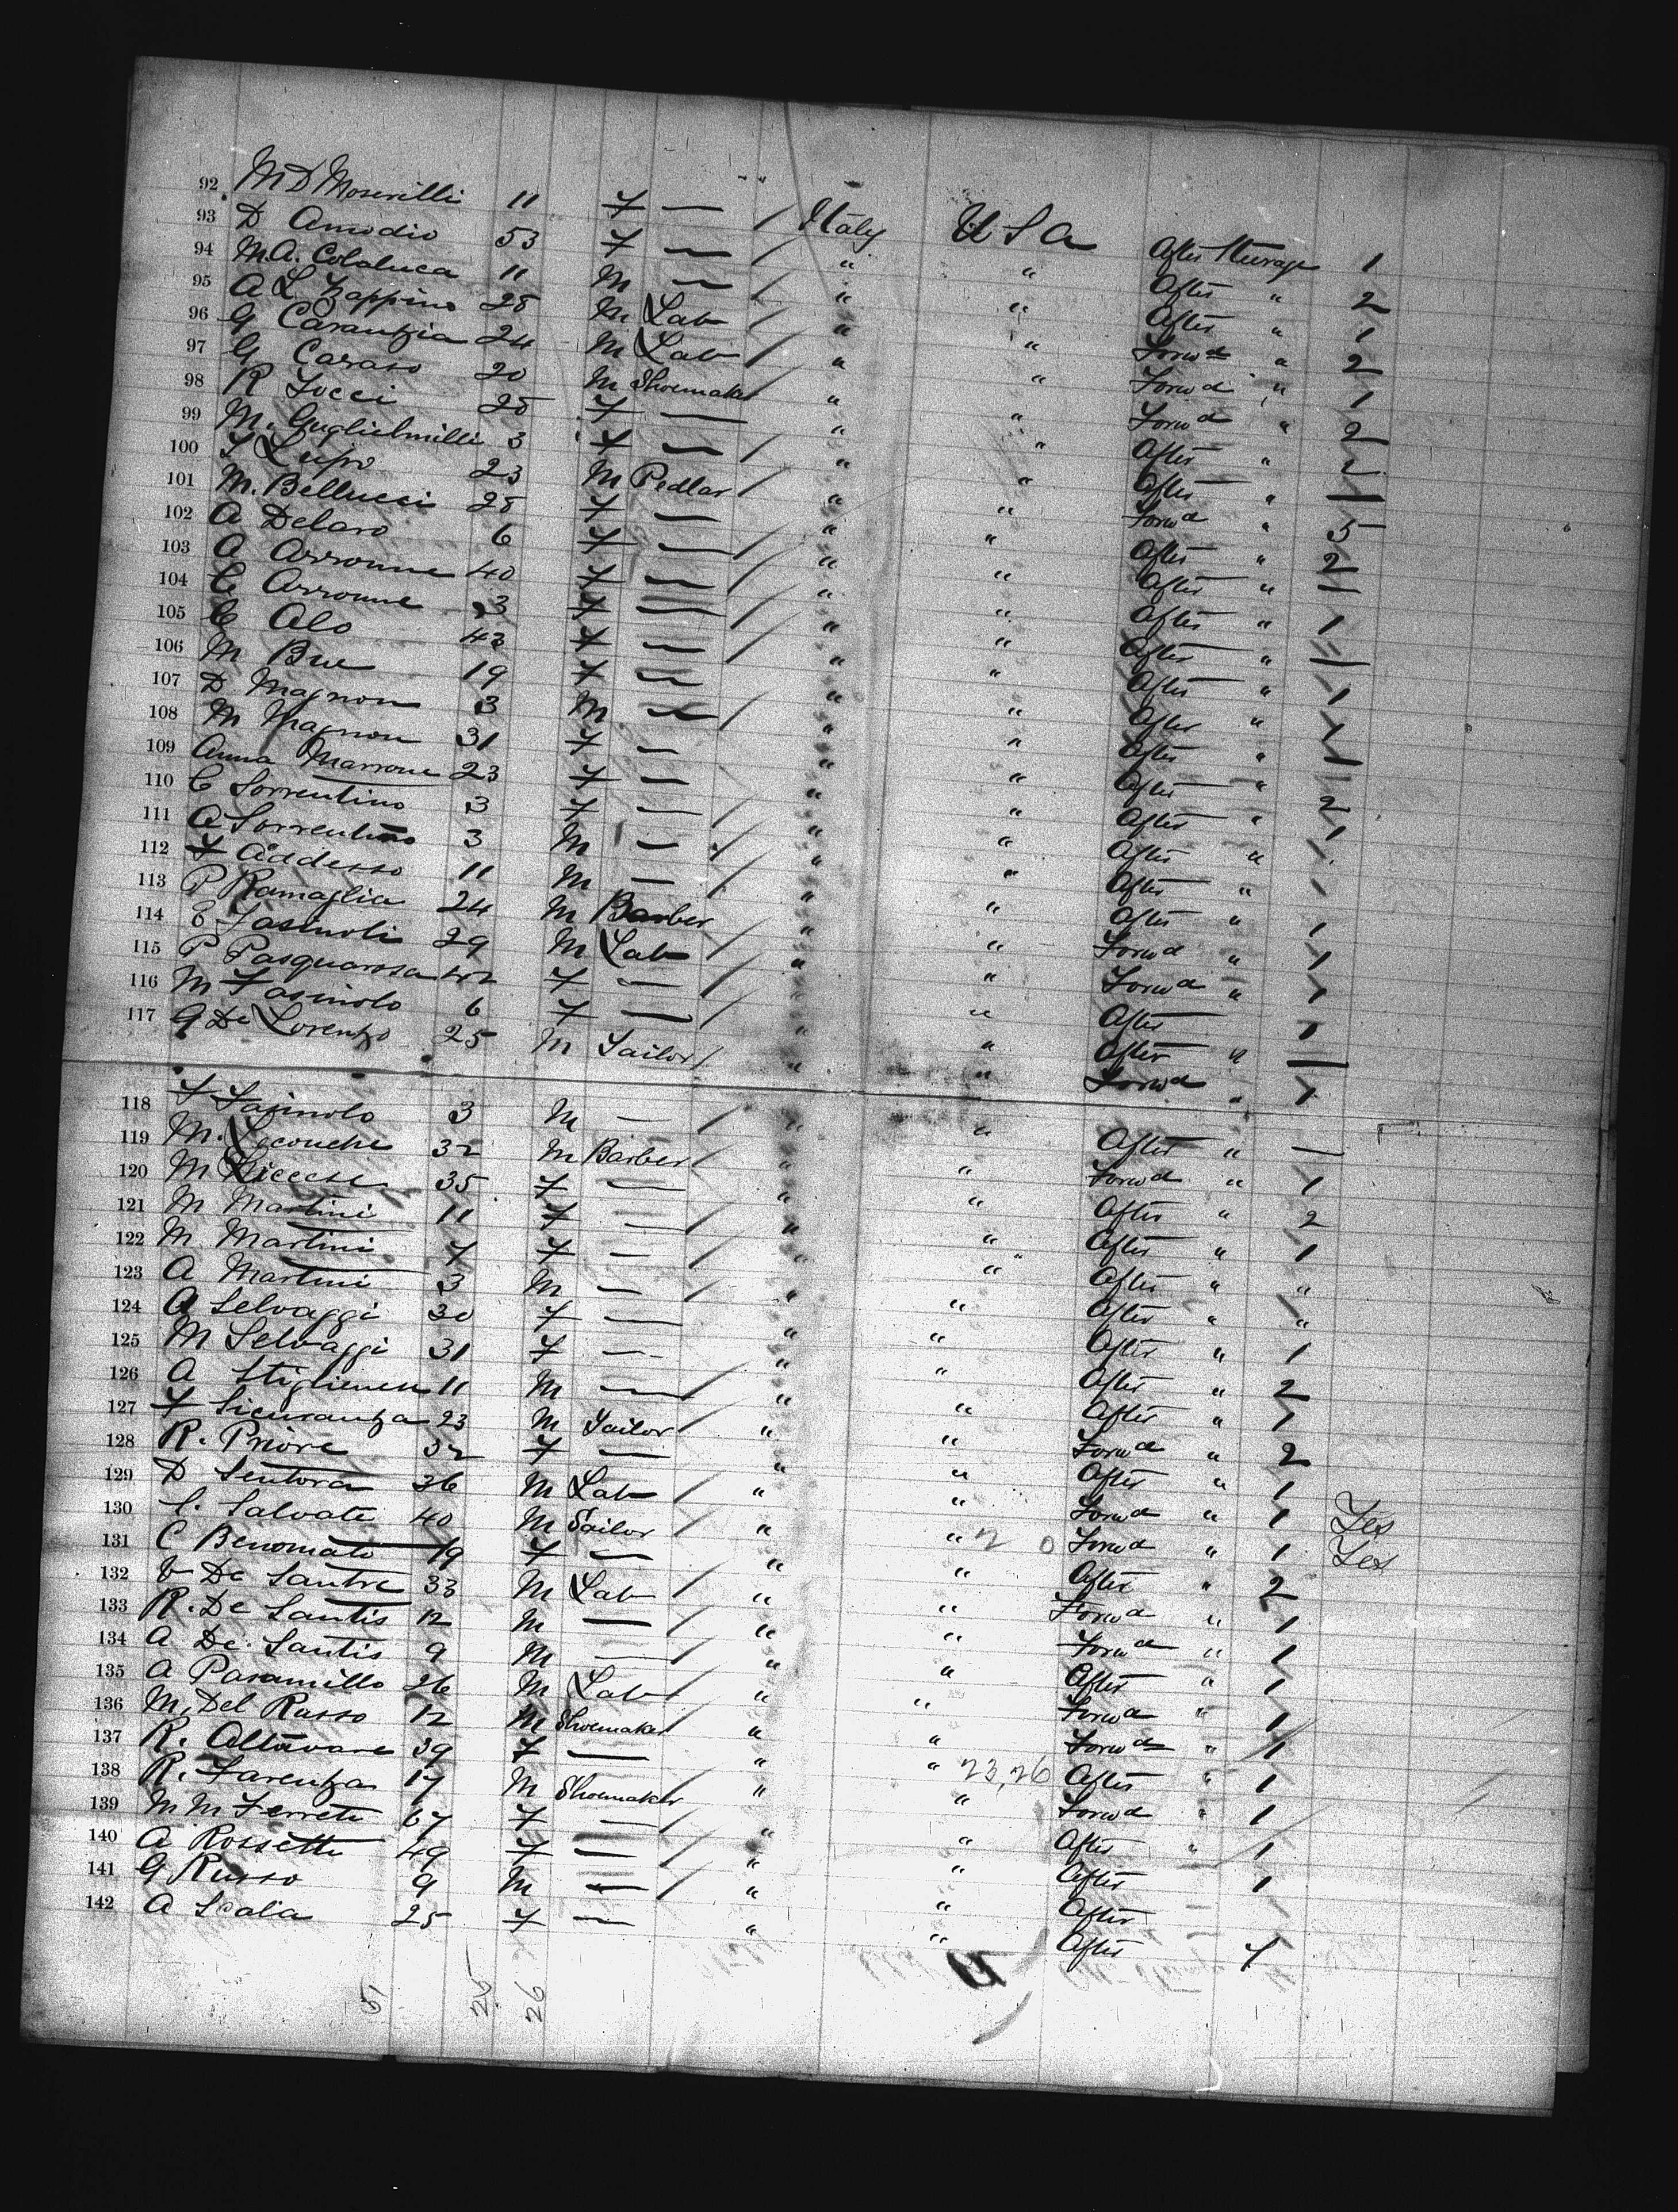 92 M D Moserilli 11 F — / Italy U S A After Steerage 1
93 D Amodio 53 F — / " " After " 2
94 M.A. Colaluca 11 M — / " " After " 1
95 A L Zappino 28 M Lab / " " Forwd " 2
96 G Carantzia 24 M Lab / " " Forwd " 1
97 G Caraso 20 M Shoemaker " " Forwd " 2
98 R Iocci 28 F — / " " After " 2
99 M. Guglielmilli 3 F — / " " After " —
100 F Lupo 23 M Pedlar / " " Forwd " 5
101 M. Bellucci 28 F — / " " After " 2
102 A Delaro 6 F — / " " After " —
103 A Arronne 40 F — / " " After " 1
104 C Arronne 3 F — / " " After " —
105 C Alo 43 F — / " " After " 1
106 M Bue 19 F — / " " After " 1
107 D Magnon 3 M — / " " After " —
108 M Magnon 31 F — / " " After " 2
109 Anna Marrone 23 F — / " " After " 1
110 C Sorrentino 3 F — / " " After "
111 A Sorrentino 3 M — / " " After " 1
112 F Addesso 11 M — / " " After " 1
113 P Ramaglia 24 M Barber / " " Forwd " 1
114 E Fasinoli 29 M Lab / " " Forwd " 1
115 P Pasquarosa 42 F — / " " After 1
116 M Fasinolo 6 F — / " " After " —
117 G De Lorenzo 25 M Tailor / " " Forwd " 1
118 F Fasinolo 3 M — / " " After " —
119 M. Locouche 32 M Barber / " " Forwd " 1
120 M Liccese 35 F — / " " After " 2
121 M Martini 11 F — / " " After " 1
122 M Martini 7 F — / " " After " "
123 A Martini 3 M — / " " After " "
124 A Selvaggi 30 F — " " After " 1
125 M Selvaggi 31 F — " " After " 2
126 A Stiglienen 11 M — / " " After " 1
127 F Sicurantza 23 M Tailor / " " Forwd " 2
128 R. Priore 32 F — " " After " 1
129 D Sentora 36 M Lab / " " Forwd " 1 Yes
130 C. Salvate 40 M Sailor / " " 2 0 Forwd " 1 Yes
131 C Benomato 19 F — / " " After " 2
132 V De Santre 33 M Lab / " " Forwd " 1
133 R. De Santis 12 M — / " " Forwd " 1
134 A De. Santis 9 M — / " " After " 1
135 A Paramillo 26 M Lab / " " Forwd " 1
136 M. Del Russo 12 M Shoemaker / " " Forwd " 1
137 R. Altavare 39 F — / " " 23,26 After " 1
138 R. Farentza 17 M Shoemaker " " Forwd " 1
139 M M Ferrete 67 F — / " " After " 1
140 A Rossetti 49 F — / " " After 1
141 G Russo 9 M — / " " After
142 A Scala 25 F — " " After 1
51 25 26